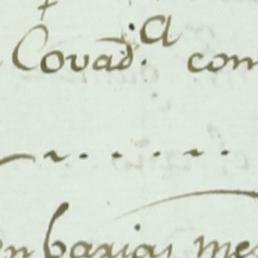 Covad.ª com
en barias me